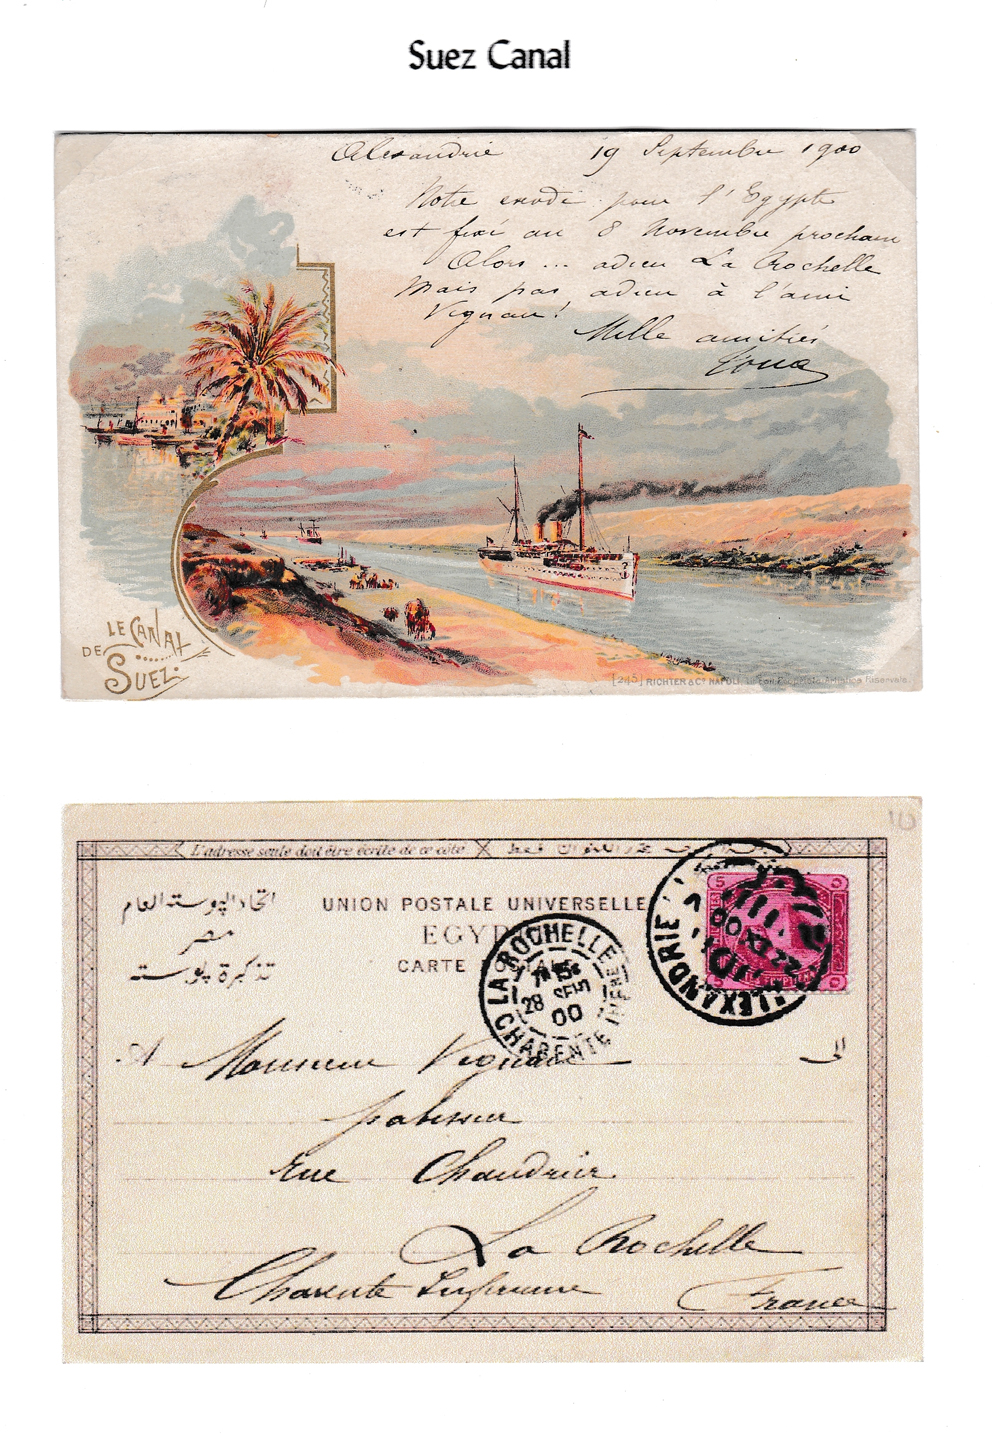 Suez Canal
Alexandrie 19 Septembre 1900
Notre exode pour l'Egypte
est fixé au 8 Novembre prochain
Alors ... adieu La Rochelle
Mais pas adieu à l'ami
Vignau!
Mille amitiés
LE CANAL
DE
SUEZ
[245] RICHTER & Cº NAPOLI
L'adresse seule doit être écrite de ce côté
اتحاد البوسته العام
مصر
تذكرة بوسته
UNION POSTALE UNIVERSELLE
EGYPTE
CARTE POSTALE
LA ROCHELLE
28 SEPT
00
CHARENTE INFRE
ALEXANDRIE
5 5
A Monsieur Vignau
الى
patissier
rue Chaudrier
La Rochelle
Charente Inférieure France